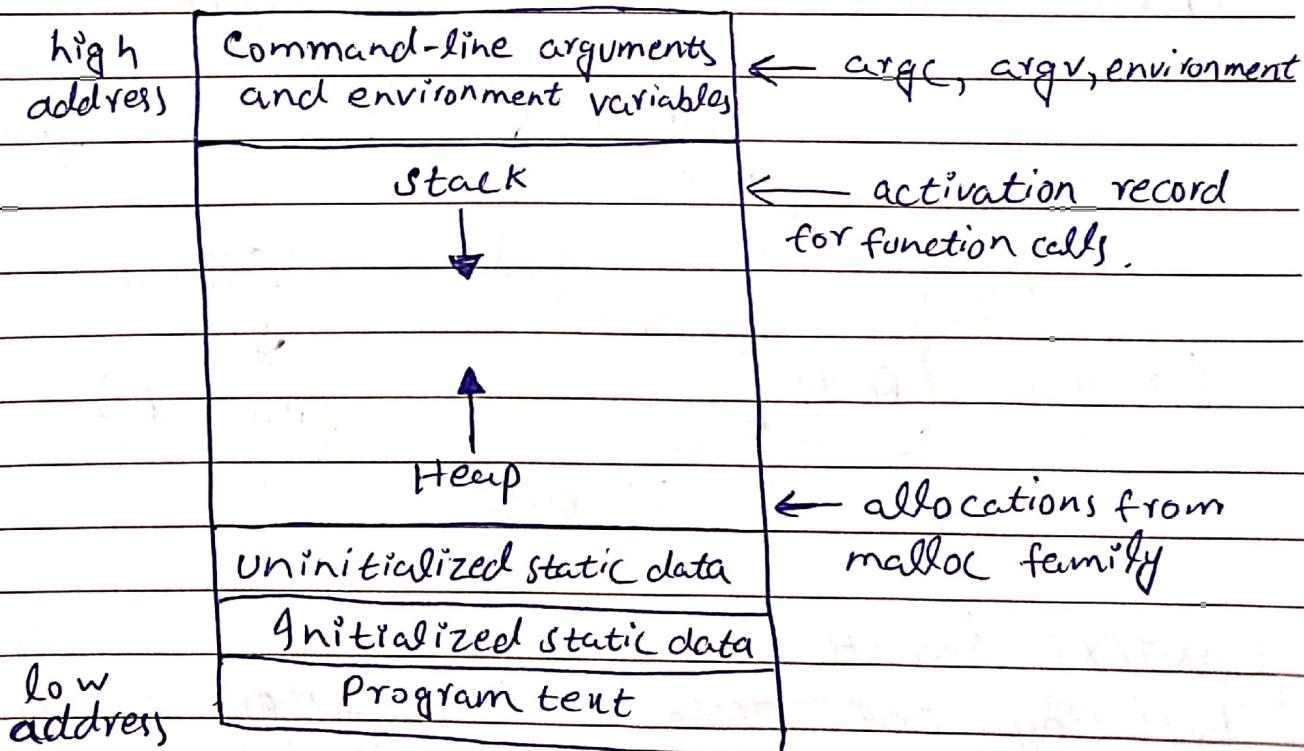 high
address
Command-line arguments
and environment variables
← argc, argv, environment
Stack
← activation record
for function calls.
Heap
← allocations from
malloc family
Uninitialized static data
Initialized static data
low
address
Program text